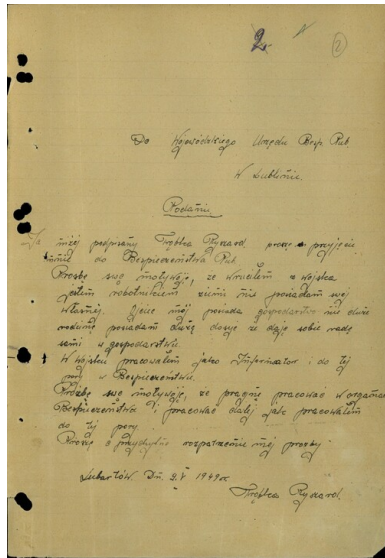 2.
2
Do Wojewódzkiego Urzędu Bezp. Pub.
w Lublinie.
Podanie
Ja niżej podpisany Trębka Ryszard. proszę o przyjęcie
mnie do Bezpieczeństwa Pub.
Prośbę swą motywuję, że wruciłem z wojska
jestem robotnikiem ziemi nie posiadam swej
własnej. Ojciec mój posiada gospodarstwo nie duże
rodzinę posiadam dużą dosyć że dają sobie radę
sami w gospodarstwie.
W wojsku pracowałem jako Informator i do tej
pory w Bezpieczeństwie.
Prośbę swą motywuję, że pragnę pracować w organach
Bezpieczeństwa i pracować dalej jak pracowałem
do tej pory.
Proszę o przychylne rozpatrzenie mej prośby.
Lubartów. Dn. 2.V 1949 r.
Trębka Ryszard.